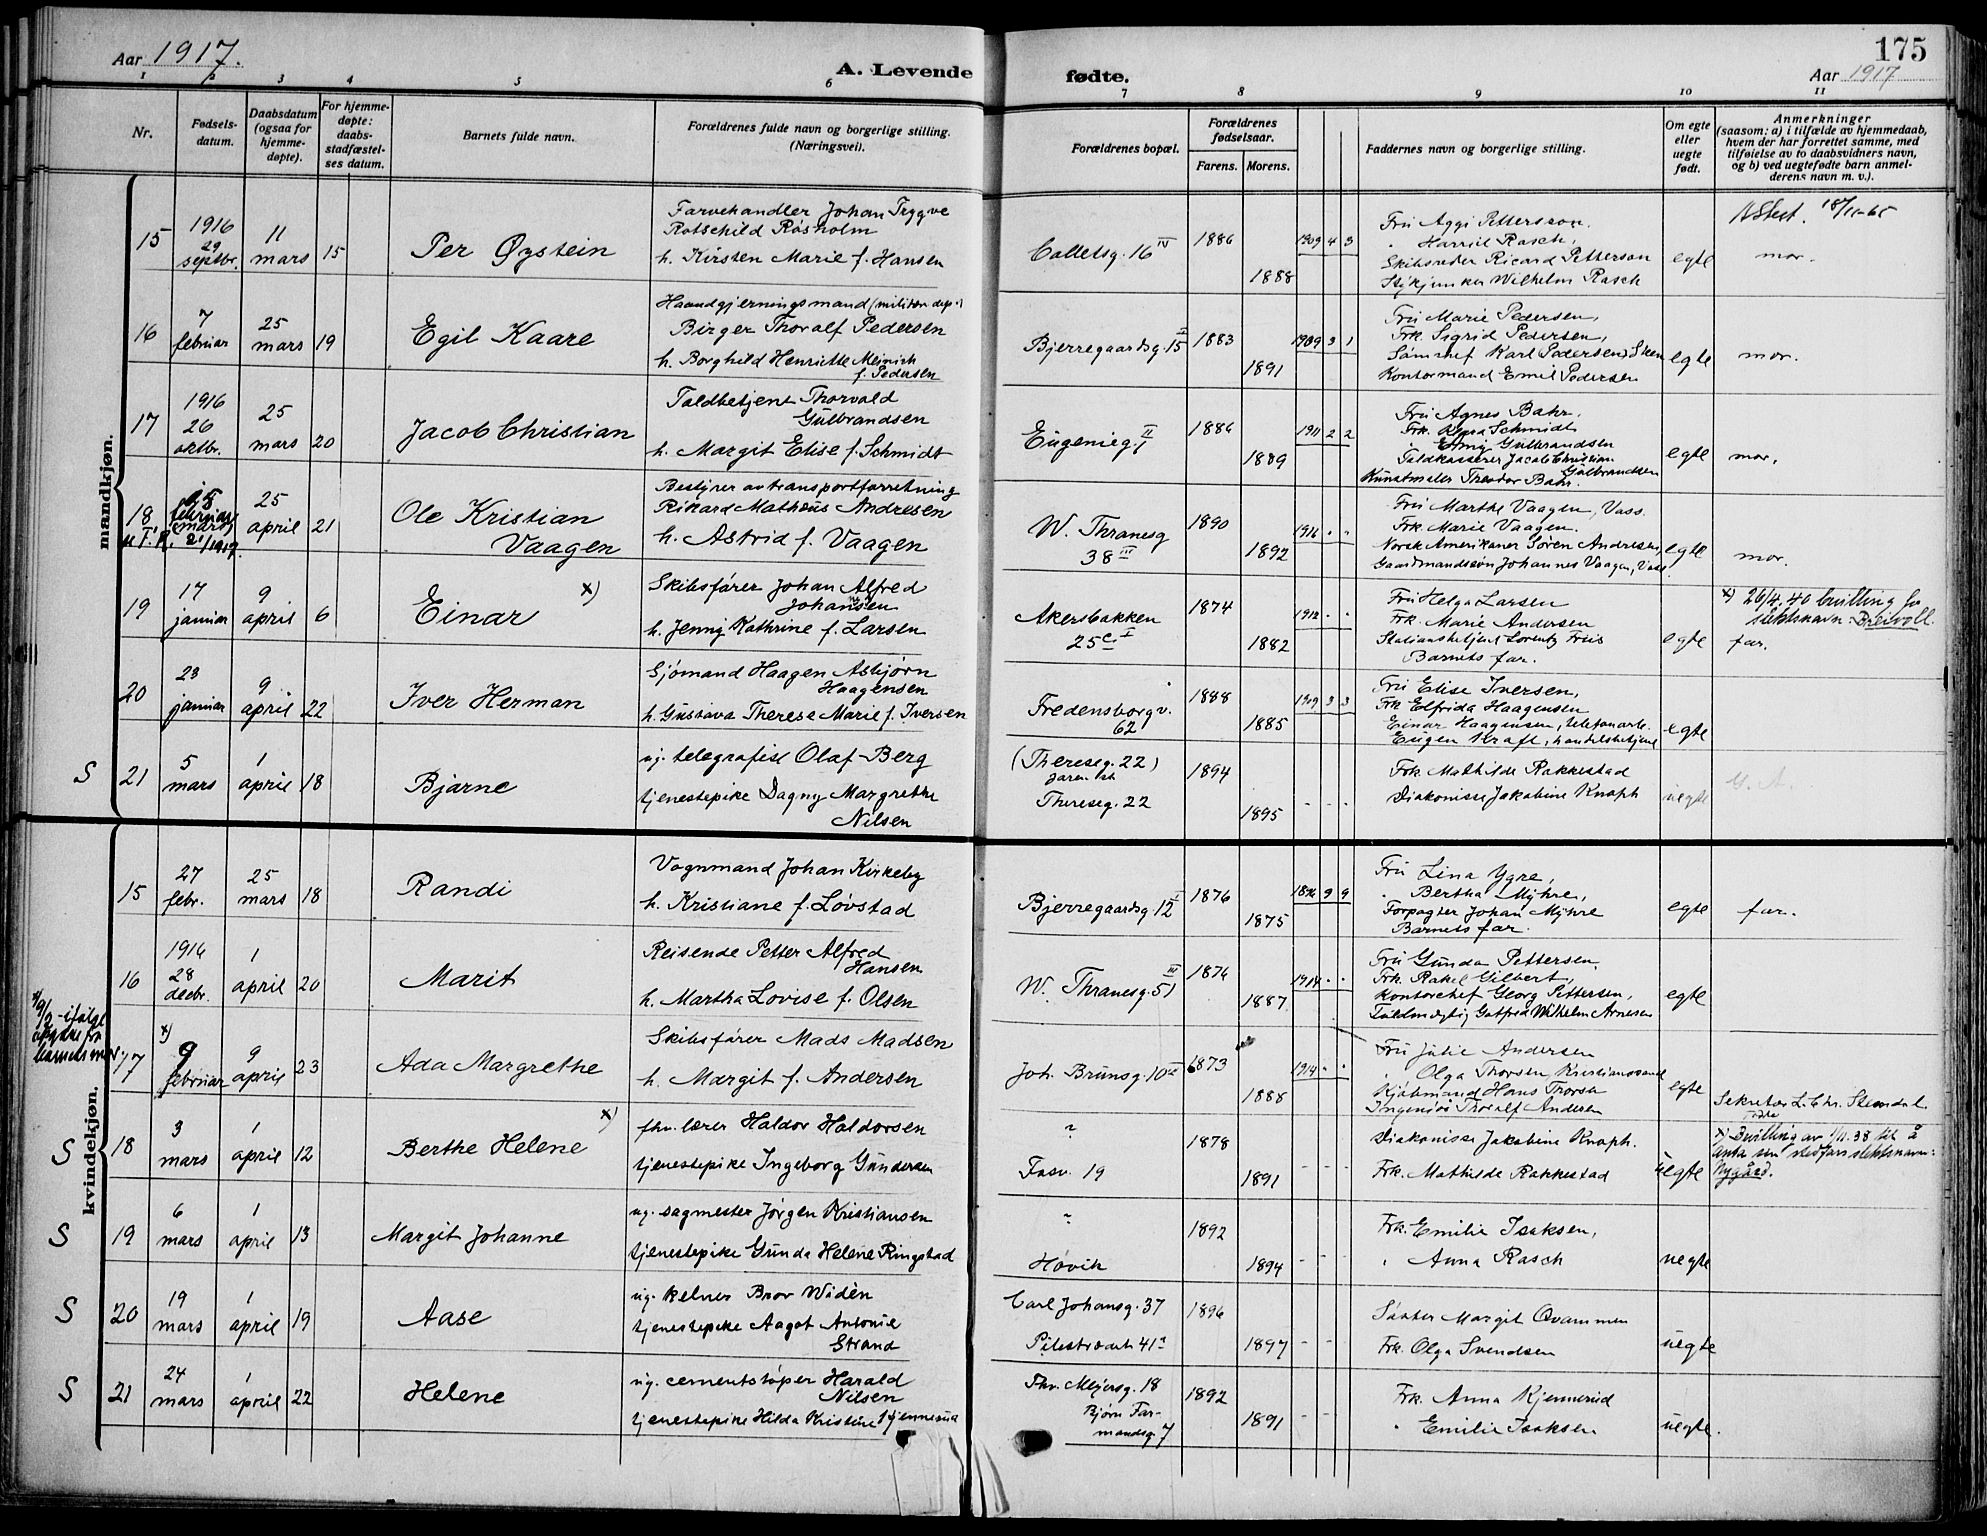 Aar 1917.
A. Levende fødte.
175
Aar 1917
1 2 3 4 5 6 7 8 9 10 11
Nr.
Fødsels-
datum.
Daabsdatum
(ogsaa for
hjemme-
døpte).
For hjemme-
døpte:
daabs-
stadfæstel-
ses datum.
Barnets fulde navn.
Forældrenes fulde navn og borgerlige stilling.
(Næringsvei).
Forældrenes bopæl.
Forældrenes
fødselsaar.
Farens. Morens.
Faddernes navn og borgerlige stilling.
Om egte
eller
uegte
født.
Anmerkninger
(saasom: a) i tilfælde av hjemmedaab,
hvem der har forrettet samme, med
tilføielse av to daabsvidners navn,
og b) ved uegtefødte barn anmel-
derens navn m. v.).
mandkjøn.
15
1916
29
septbr.
11
mars
15
Per Øystein
Farvehandler Johan Trygve
Rotschild Røsholm
h. Kirsten Marie f. Hansen
Colletsg. 16 IV
1886
1888
1909 4 3
Fru Aggi Pettersson.
" Harriet Rasch,
Skibsreder Ricard Petterson
Stykjunker Wilhelm Rasch
egte
mor.
16
7
februar
25
mars
19
Egil Kaare
Haandgjerningsmand (militær dep.)
Birger Thoralf Pedersen
h. Borghild Henriette Meinich
f. Pedersen
Bjerregaardsg. 15 II
1883
1891
1909 3 1
Fru Marie Pedersen,
Frk. Sigrid Pedersen,
Karl Pedersen, Skien
Kontormand Emil Pedersen
egte
mor.
17
1916
26
oktbr.
25
mars
20
Jacob Christian
Toldbetjent Thorvald
Gulbrandsen
h. Margit Elise f. Schmidt
Eugenieg. 1 II
1886
1889
1911 2 2
Fru Agnes Bahr.
Frk. Schmidt
" Gulbrandsen
Toldkasserer Jacob Christian
Gulbrandsen
Kunstmaler Theodor Bahr.
egte
mor.
18
25
april
21
Ole Kristian
Vaagen
Bestyrer av transportforretning
Rikard Mathæus Andresen
h. Astrid f. Vaagen
W. Thranesg
38 III
1890
1892
1916 " "
Fru Marthe Vaagen, Vass.
Frk. Marie Vaagen.
Norsk Amerikaner Søren Andresen,
Gaardmandssøn Johannes Vaagen, Vass.
egte
mor.
19
17
januar
9
april
6
Einar x)
Skibsfører Johan Alfred
Johansen
h. Jenny Kathrine f. Larsen
Akersbakken
25 c I
1874
1882
1912 " "
Fru Helga Larsen
Frk. Marie Andersen
Stationsbetjent Lorentz Friis
Barnets far.
egte
x) 26/4.40 bevilling for
slektsnavn:
far.
20
23
januar
9
april
22
Iver Herman
Sjømand Haagen Asbjørn
Haagensen
h. Gustava Therese Marie f. Iversen
Fredensborgv.
62
1888
1885
1909 3 3
Fru Elise Iversen,
Frk Elfrida Haagensen
Einar Haagensen, telefonarb.
Eugen Kraft, handelsbetjent
egte
S
21
5
mars
1
april
18
Bjarne
ug. telegrafist Olaf Berg
tjenestepike Dagny Margrethe
Nilsen
(Thereseg. 22)
Thereseg. 22
1894
1895
- - -
Frk. Mathilde Rakkestad
Diakonisse Jakobine Knoph
uegte
kvindekjøn.
15
27
febr.
25
mars
18
Randi
Vognmand Johan Kirkeby
h. Kristiane f. Løvstad
Bjerregaardsg. 12 I
1876
1875
1896 9 9
Fru Lina Ygre,
" Bertha Myhre,
Forpagter Johan Myhre
Barnets far.
egte
far.
16
1916
28
decbr.
1
april
20
Marit
Reisende Petter Alfred
Hansen
h. Martha Lovise f. Olsen
W. Thranesg. 51 III
1876
1887
1914 " "
Fru Gunda Pettersen,
Frk. Rakel Gilbert,
Kontorchef Georg Pettersen,
Toldmægtig Gotfred Wilhelm Arnesen
egte
17
x)
9
februar
9
april
23
Ada Margrethe
Skibsfører Mads Madsen
h. Margit f. Andersen
Joh. Brunsg. 10 III
1873
1888
1914 " "
Fru Julie Andersen
" Olga Thorsen Kristianssand
Kjøbmand Hans Thorsen
Ingeniør Thoralf Andersen
egte
S
18
3
mars
1
april
12
Berthe Helene x)
fhv. lærer Haldor Haldorsen
tjenestepike Ingeborg Gundersen
?
Fasv. 19
1878
1891
- - -
Diakonisse Jakobine Knoph.
Frk. Mathilde Rakkestad
uegte
Sekretær L. Chr. Stendal.
x) Bevilling av 1/11.38 til å
anta sin stedfars slektsnavn:
Nygård.
S
19
6
mars
1
april
13
Margit Johanne
ug. sagmester Jørgen Kristiansen
tjenestepike Gunda Helene Ringstad
?
Høvik
1892
1894
- - -
Frk. Emilie Isaksen,
" Anna Rasch
uegte
S
20
19
mars
1
april
19
Aase
ug. kelner Bror Widèn
tjenestepike Aagot Antonie
Strand
Carl Johansg. 37
Pilestrædet 41 a
1896
1897
- - -
Søster Margit Qvammen
Frk. Olga Svendsen
uegte
S
21
24
mars
1
april
22
Helene
ug. cementstøper Harald
Nilsen
tjenestepike Hilda Kristine Kjennerud
Thv. Meyersg. 18
Bjørn Far-
mandsg. 7
1892
1891
- -
Frk. Anna Kjennerud
" Emilie Isaksen
uegte.